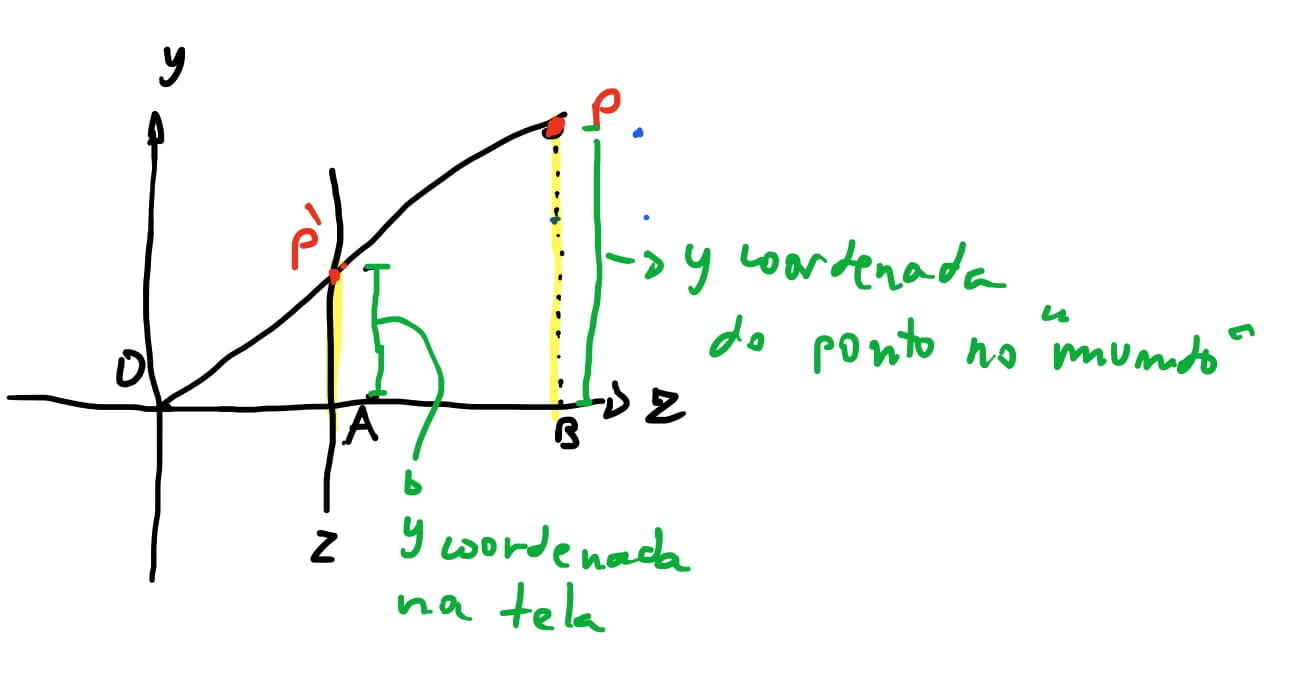 y
P
P'
y coordenada
do ponto no "mundo"
O
A
B
z
z
y coordenada
na tela